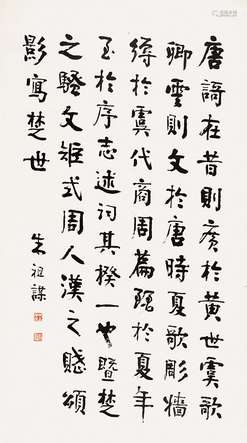 唐謌在昔則廣於黃世虞歌
卿雲則文於唐時夏歌彫牆
縟於虞代商周篇麗於夏年
至於序志述詞其揆一也暨楚
之騷文矩式周人漢之賦頌
影寫楚世
朱祖謀